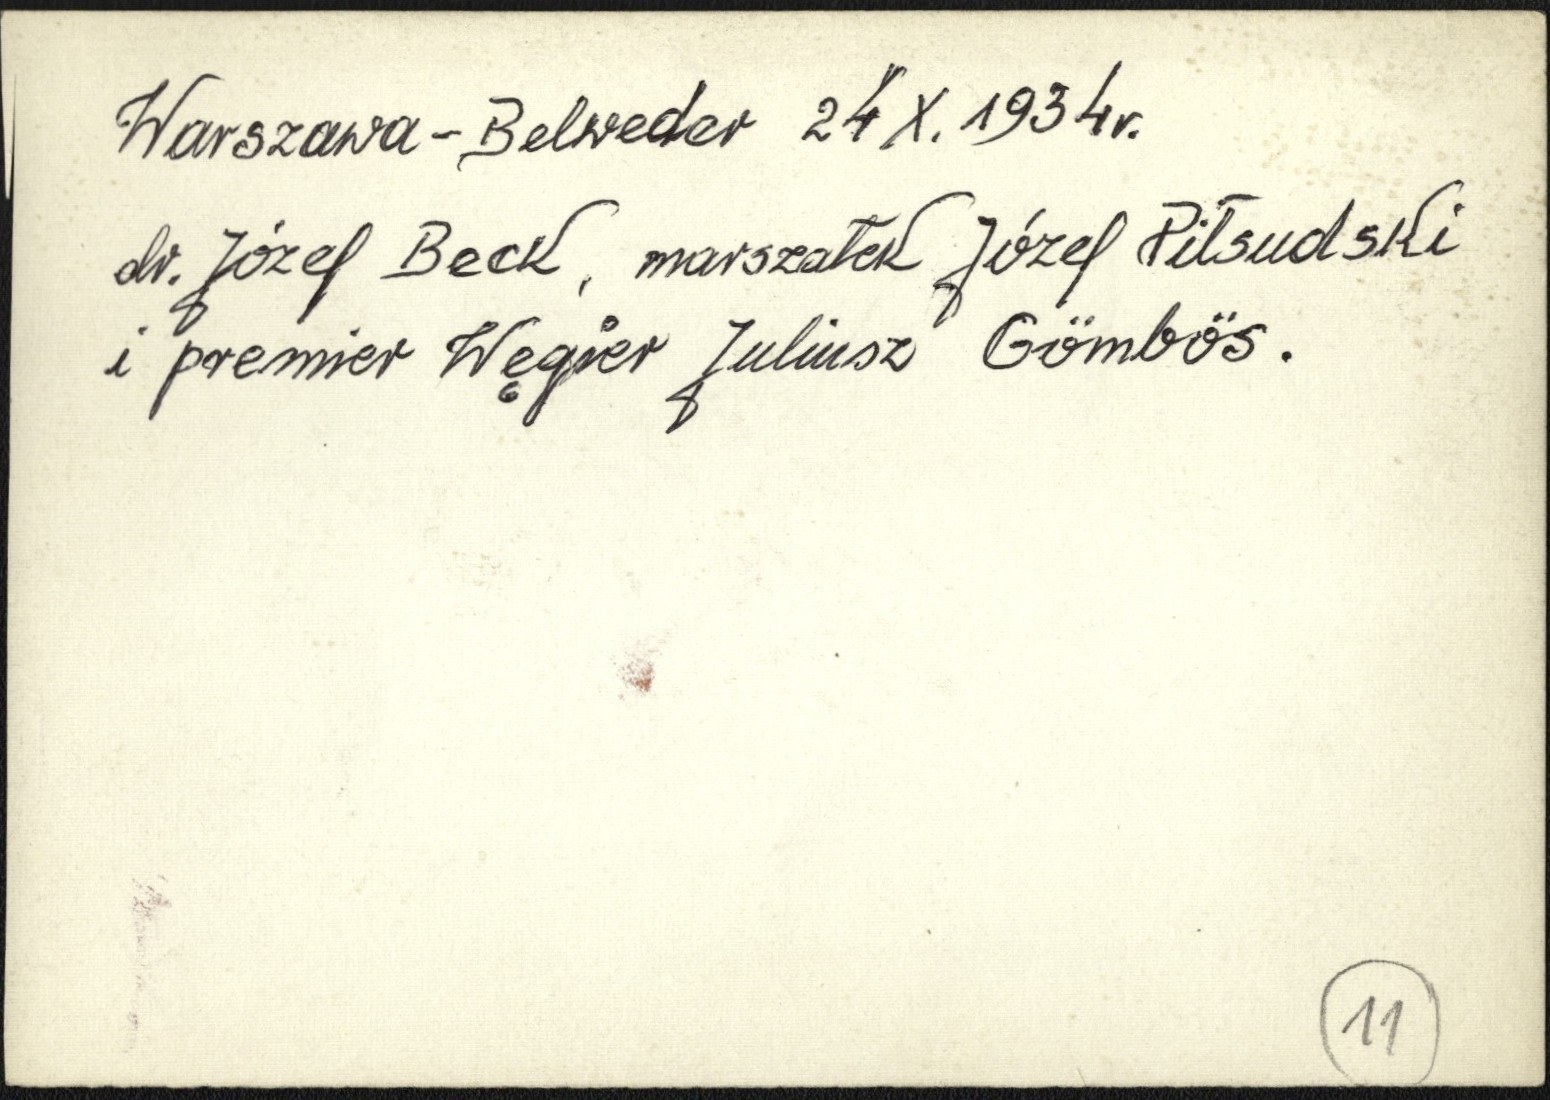 Warszawa - Belweder 24 X. 1934 r.
dr. Józef Beck, marszałek Józef Piłsudski
i premier Węgier Juliusz Gömbös.
11